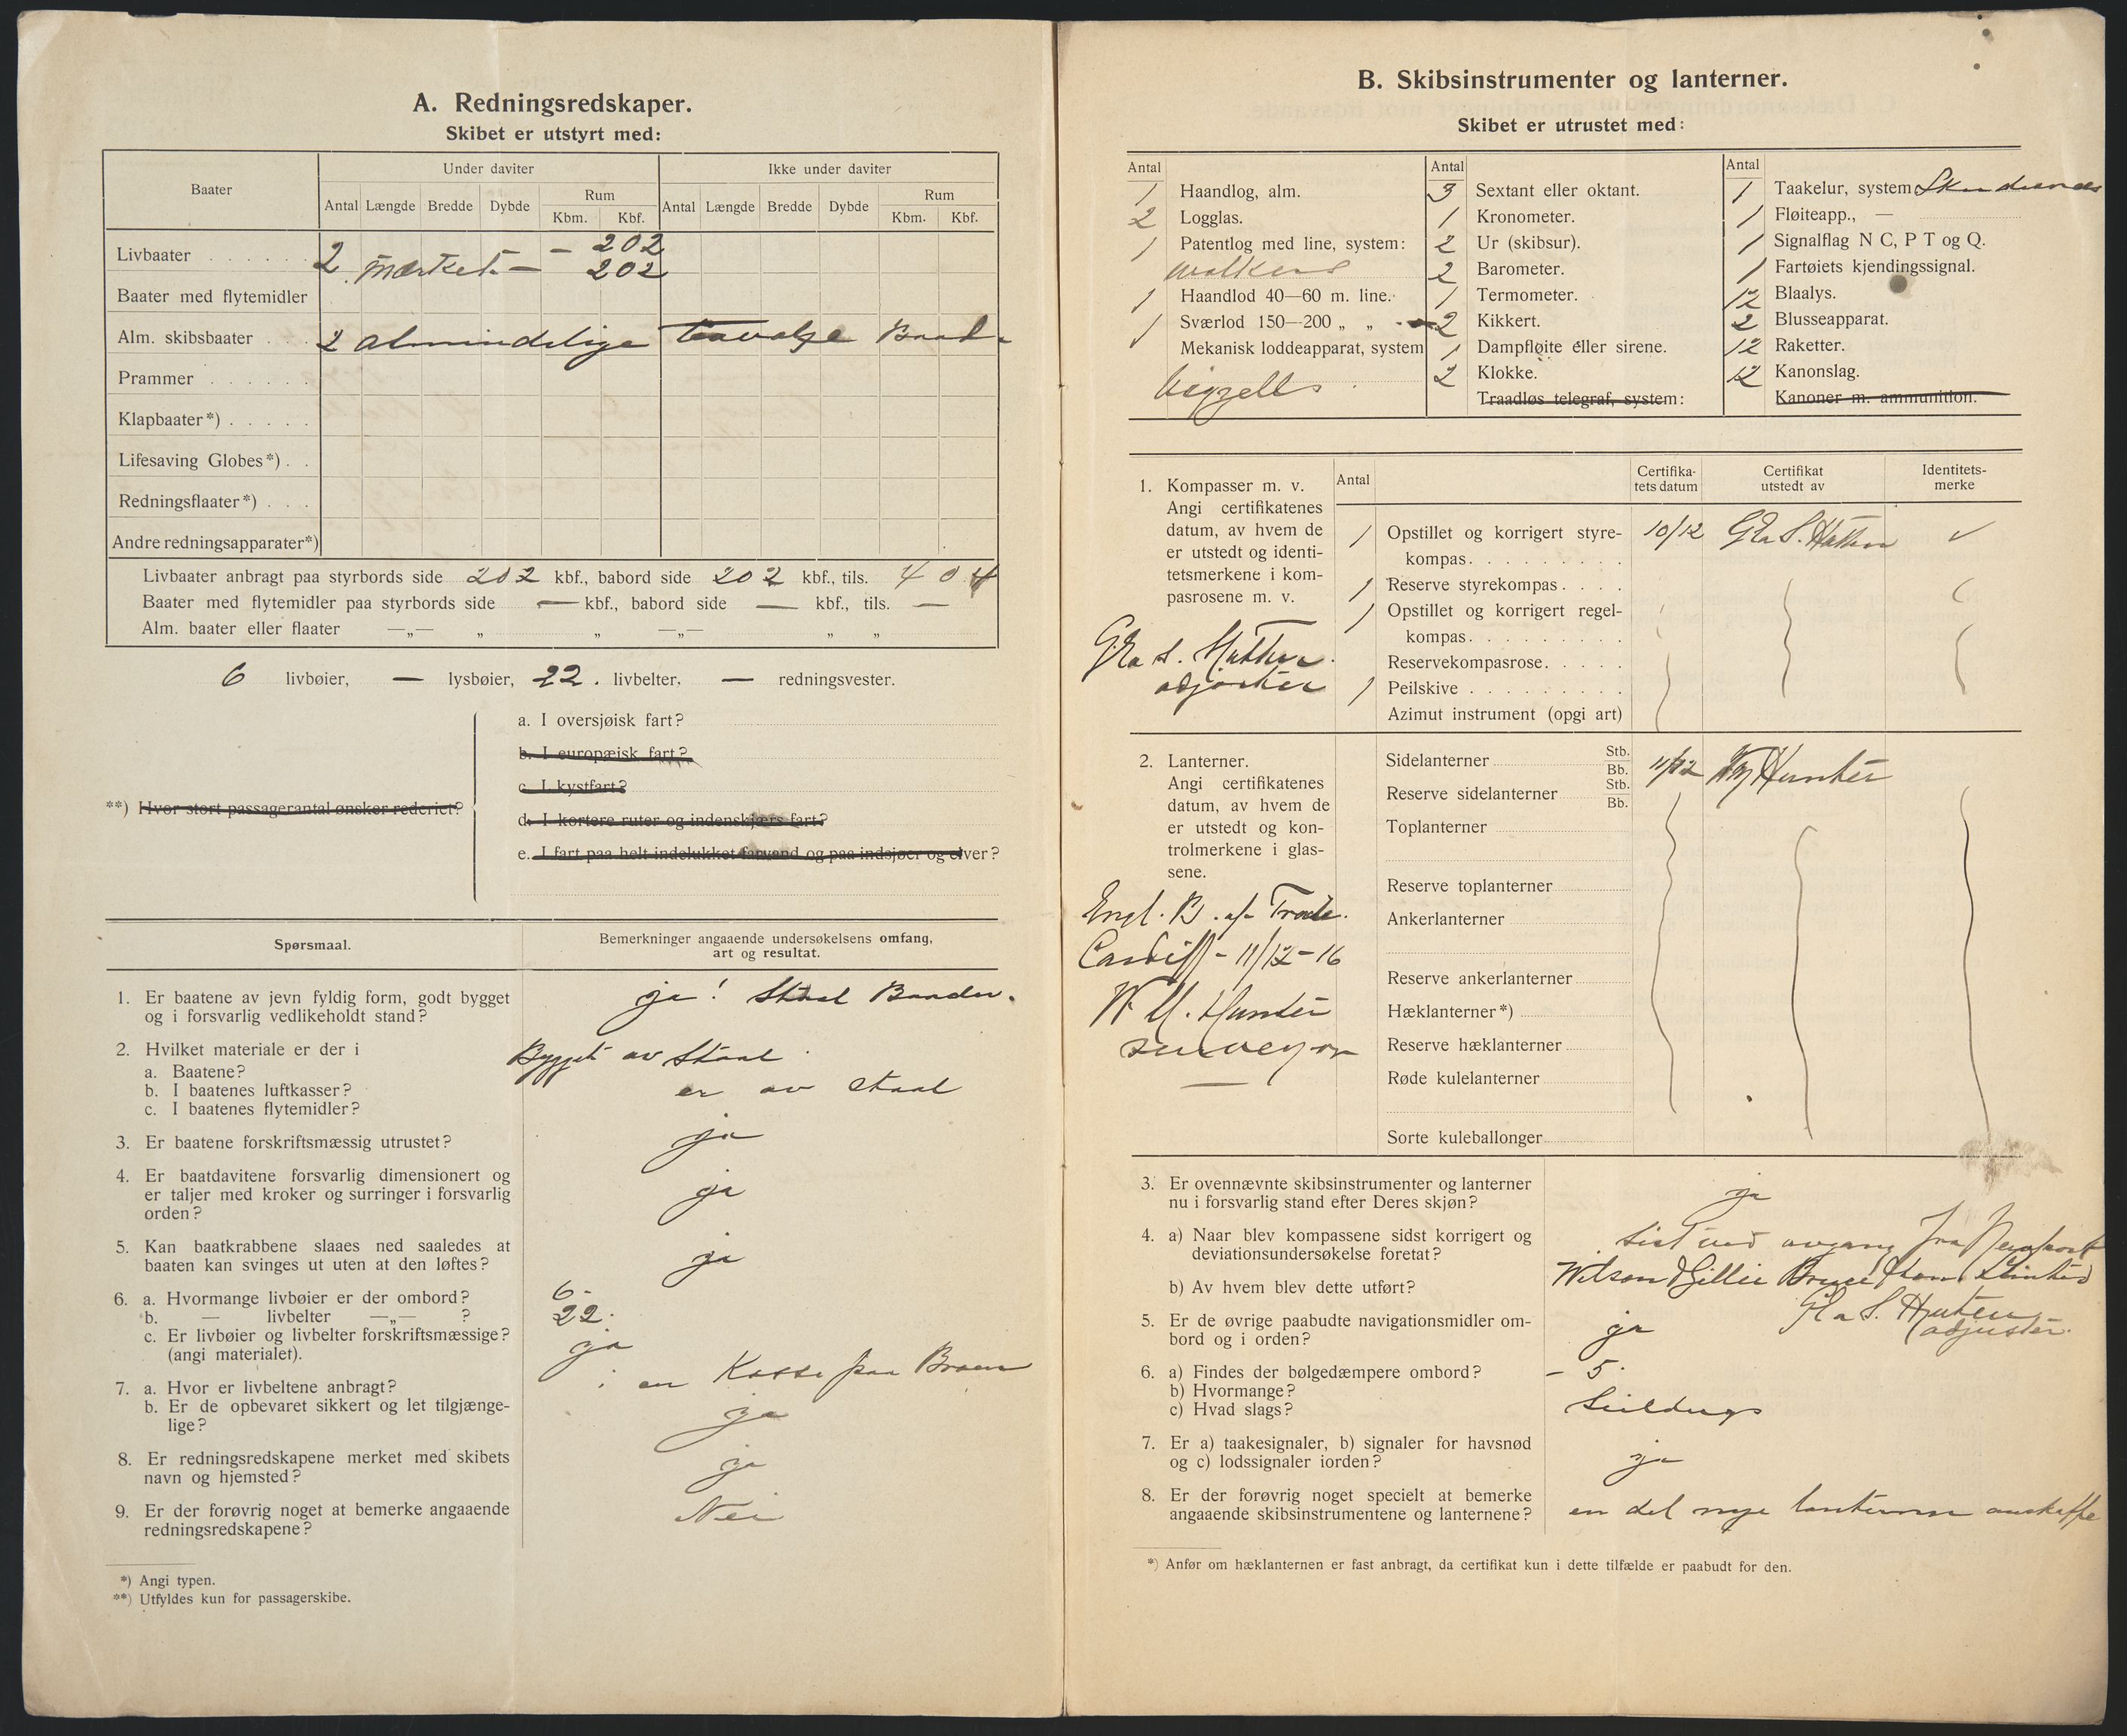 A. Redningsredskaper.
Skibet er utstyrt med:
Baater
Under daviter
Ikke under daviter
Antal Længde Bredde Dybde Rum Kbm. Kbf.
Antal Længde Bredde Dybde Rum Kbm. Kbf.
Livbaater 2 mærket — — 202
202
Baater med flytemidler
Alm. skibsbaater 2 almindelige Baad
Prammer
Klapbaater*)
Lifesaving Globes*)
Redningsflaater*)
Andre redningsapparater*)
Livbaater anbragt paa styrbords side 202 kbf., babord side 202 kbf., tils. 404
Baater med flytemidler paa styrbords side — kbf., babord side — kbf., tils. —
Alm. baater eller flaater —„— „ „ —„— „ „
6 livbøier, — lysbøier, 22. livbelter, — redningsvester.
**) Hvor stort passagerantal ønsker rederiet?
a. I oversjøisk fart?
b. I europæisk fart?
c. I kystfart?
d. I kortere ruter og indenskjærs fart?
e. I fart paa helt indelukket farvand og paa indsjøer og elver?
Spørsmaal.
Bemerkninger angaaende undersøkelsens omfang,
art og resultat.
1. Er baatene av jevn fyldig form, godt bygget
og i forsvarlig vedlikeholdt stand?
ja! Staal Baader.
2. Hvilket materiale er der i
a. Baatene?
Bygget av Staal
b. I baatenes luftkasser?
er av staal
c. I baatenes flytemidler?
3. Er baatene forskriftsmæssig utrustet?
ja
4. Er baatdavitene forsvarlig dimensionert og
er taljer med kroker og surringer i forsvarlig
orden?
ja
5. Kan baatkrabbene slaaes ned saaledes at
baaten kan svinges ut uten at den løftes?
ja
6. a. Hvormange livbøier er der ombord?
6-
b. — livbelter —„— ?
22.
c. Er livbøier og livbelter forskriftsmæssige?
(angi materialet).
ja
7. a. Hvor er livbeltene anbragt?
i en Kasse paa Broen
b. Er de opbevaret sikkert og let tilgjænge-
lige?
ja
8. Er redningsredskapene merket med skibets
navn og hjemsted?
ja
9. Er der forøvrig noget at bemerke angaaende
redningsredskapene?
Nei
*) Angi typen.
**) Utfyldes kun for passagerskibe.
B. Skibsinstrumenter og lanterner.
Skibet er utrustet med:
Antal
1 Haandlog, alm.
2 Logglas.
1 Patentlog med line, system:
Walkers
1 Haandlod 40—60 m. line.
1 Sværlod 150—200 „ „
Mekanisk loddeapparat, system
Antal
3 Sextant eller oktant.
1 Kronometer.
2 Ur (skibsur).
2 Barometer.
1 Termometer.
2 Kikkert.
1 Dampfløite eller sirene.
2 Klokke.
Traadløs telegraf, system:
Antal
1 Taakelur, system
1 Fløiteapp., —
1 Signalflag N C, P T og Q.
1 Fartøiets kjendingssignal.
12 Blaalys.
2 Blusseapparat.
12 Raketter.
12 Kanonslag.
Kanoner m. ammunition.
1. Kompasser m. v.
Angi certifikatenes
datum, av hvem de
er utstedt og identi-
tetsmerkene i kom-
pasrosene m. v.
adjuster
Antal
Certifika-
tets datum
Certifikat
utstedt av
Identitets-
merke
1 Opstillet og korrigert styre-
kompas 10/12
1 Reserve styrekompas
1 Opstillet og korrigert regel-
kompas
Reservekompasrose
1 Peilskive
Azimut instrument (opgi art)
2. Lanterner.
Angi certifikatenes
datum, av hvem de
er utstedt og kon-
trolmerkene i glas-
sene.
Engl. B. of Trade.
Cardiff - 11/12-16
W. M. Hunter
surveyor
Sidelanterner Stb. Bb. 11/12 Hunter
Reserve sidelanterner Stb. Bb.
Toplanterner
Reserve toplanterner
Ankerlanterner
Reserve ankerlanterner
Hæklanterner*)
Reserve hæklanterner
Røde kulelanterner
Sorte kuleballonger
3. Er ovennævnte skibsinstrumenter og lanterner
nu i forsvarlig stand efter Deres skjøn?
ja
4. a) Naar blev kompassene sidst korrigert og
deviationsundersøkelse foretat?
sist ved avgang fra Newport
b) Av hvem blev dette utført?
Wilson & Gillie
adjuster.
5. Er de øvrige paabudte navigationsmidler om-
bord og i orden?
ja
6. a) Findes der bølgedæmpere ombord?
b) Hvormange?
- 5.
c) Hvad slags?
Seildugs
7. Er a) taakesignaler, b) signaler for havsnød
og c) lodssignaler iorden?
ja
8. Er der forøvrig noget specielt at bemerke
angaaende skibsinstrumentene og lanternene?
en del nye lanterner anskaffe
*) Anfør om hæklanternen er fast anbragt, da certifikat kun i dette tilfælde er paabudt for den.